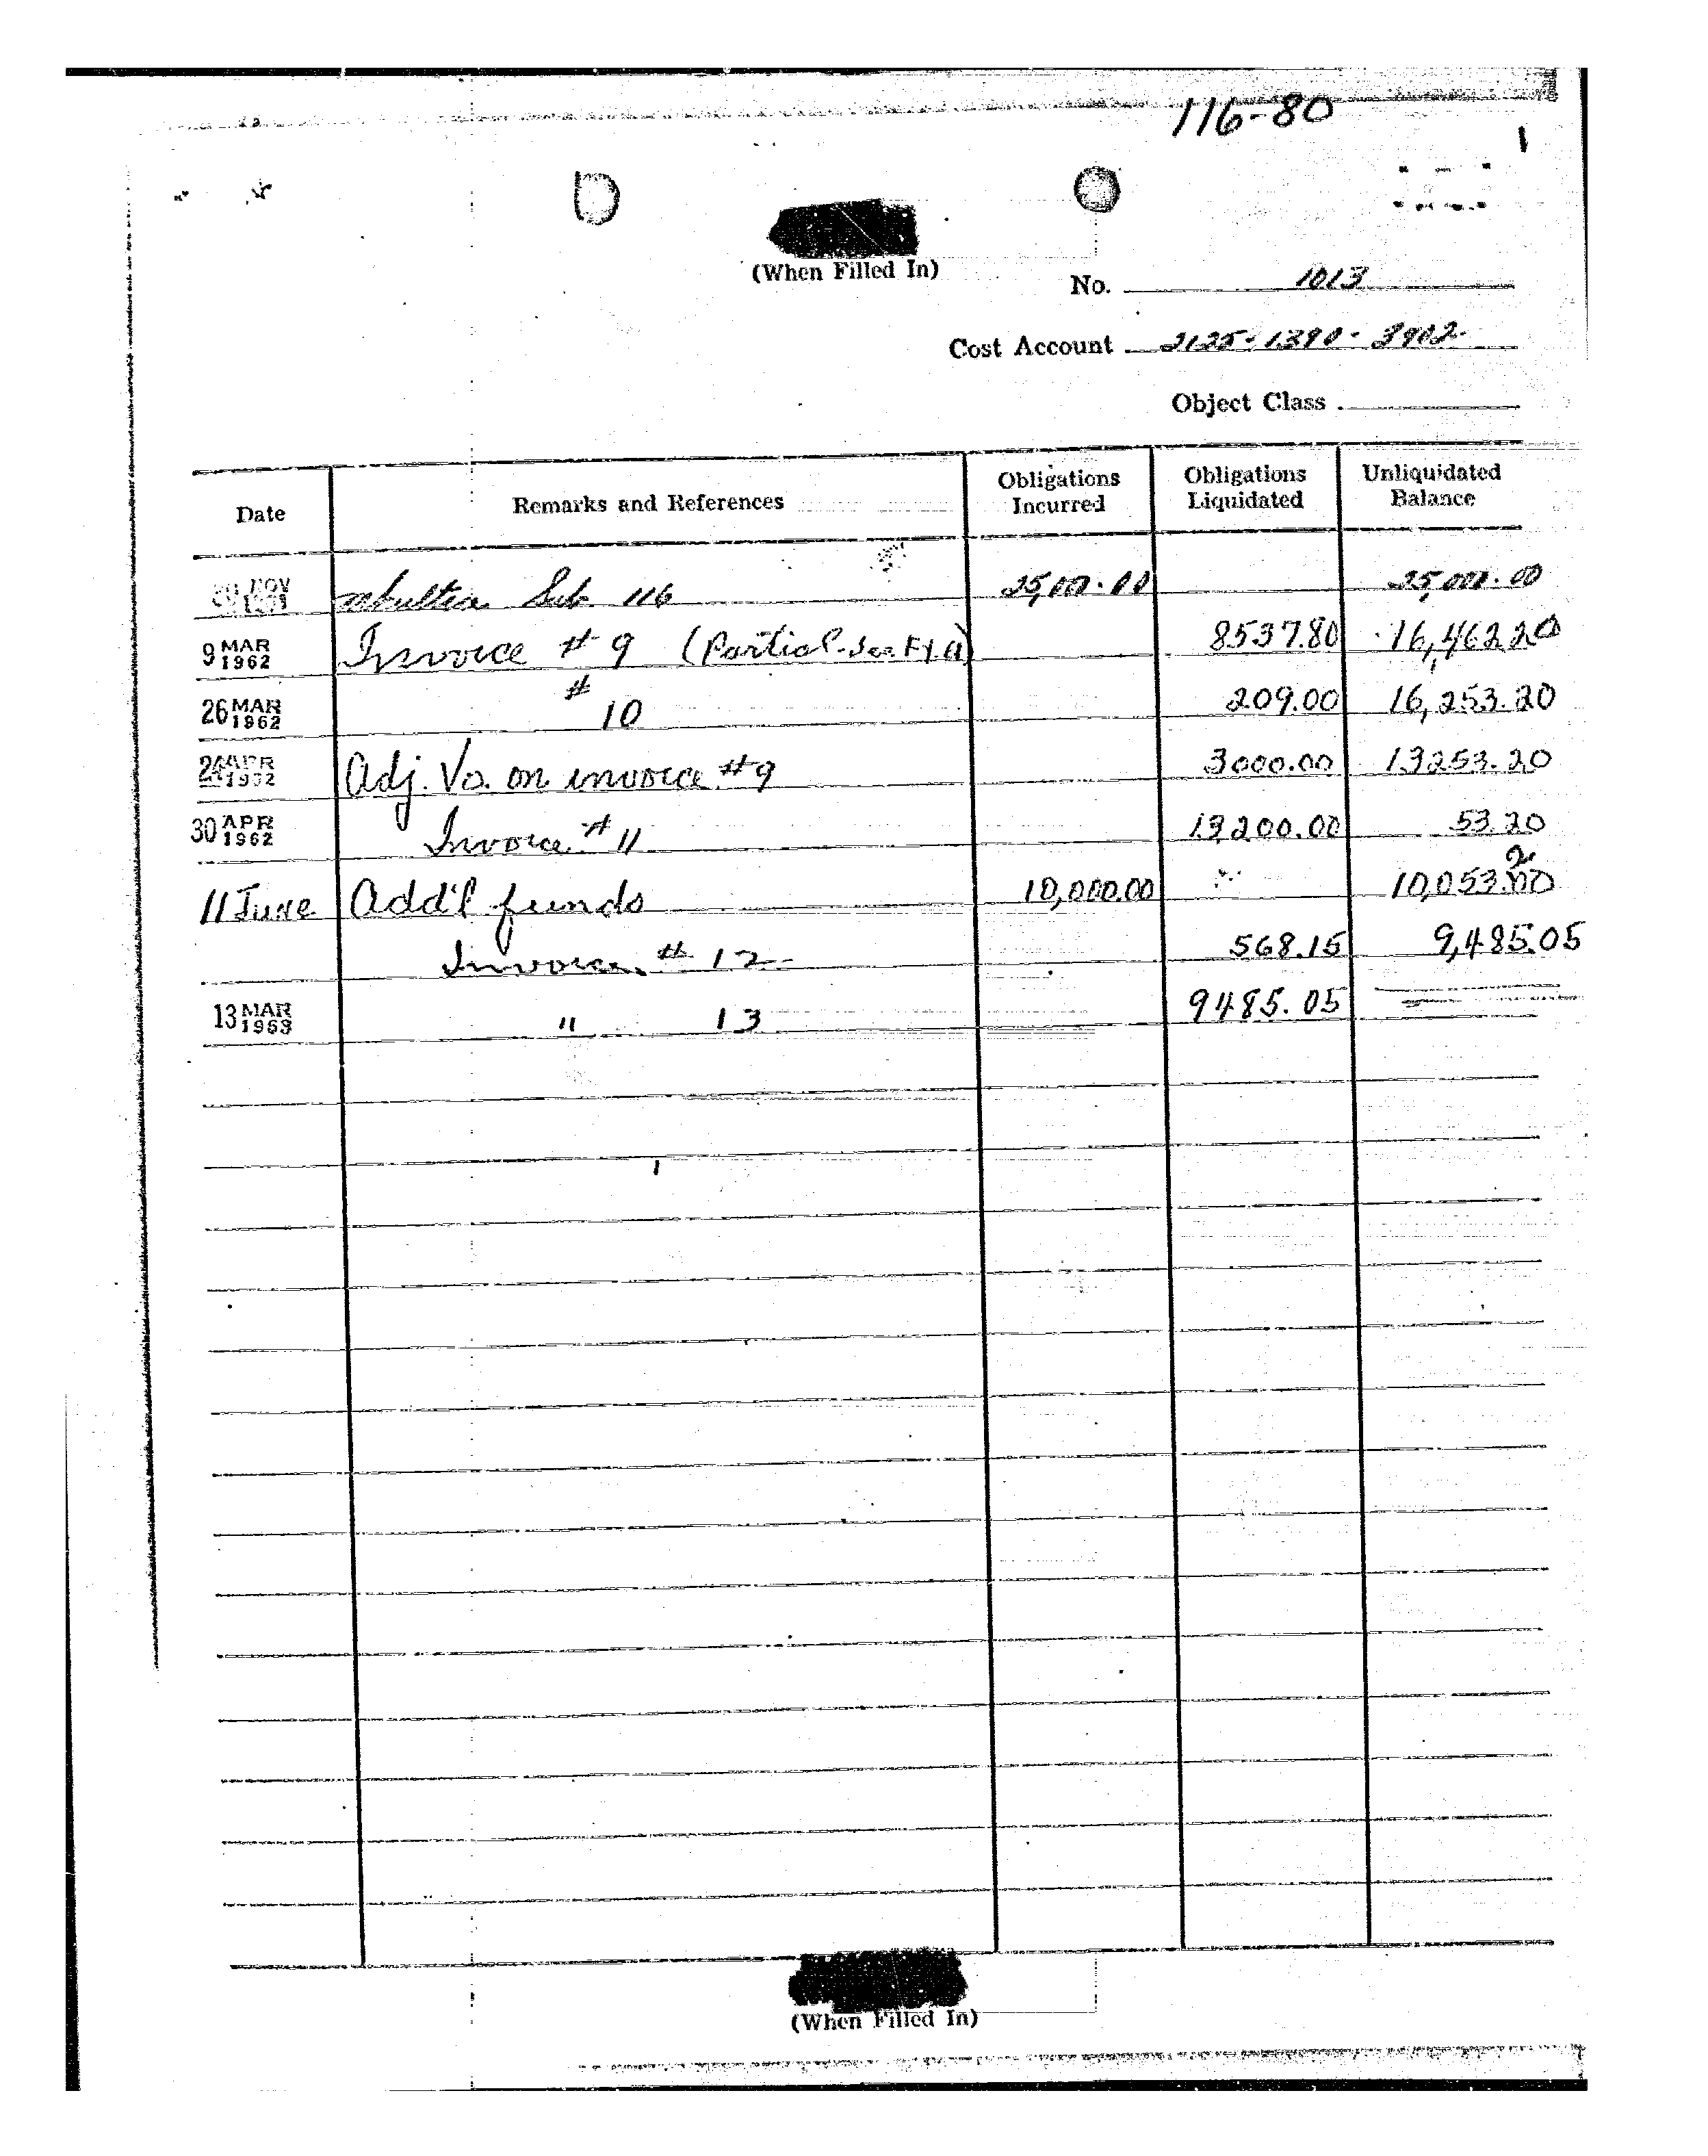 116-80
(When Filled In)
No. 1013
Cost Account 2125-1390-3902
Object Class
Date Remarks and References Obligations Incurred Obligations Liquidated Unliquidated Balance
30 NOV 1961 mkultra Sub 116 25,000.00 25,000.00
9 MAR 1962 Invoice #9 (Partial- 8537.80 16,462.20
26 MAR 1962 # 10 209.00 16,253.20
24 APR 1962 Adj. Vo. on invoice #9 3000.00 13253.20
30 APR 1962 Invoice # 11 13200.00 53.20
11 June Add'l funds 10,000.00 10,053.20
Invoice # 12 568.15 9,485.05
13 MAR 1963 " 13 9485.05
(When Filled In)